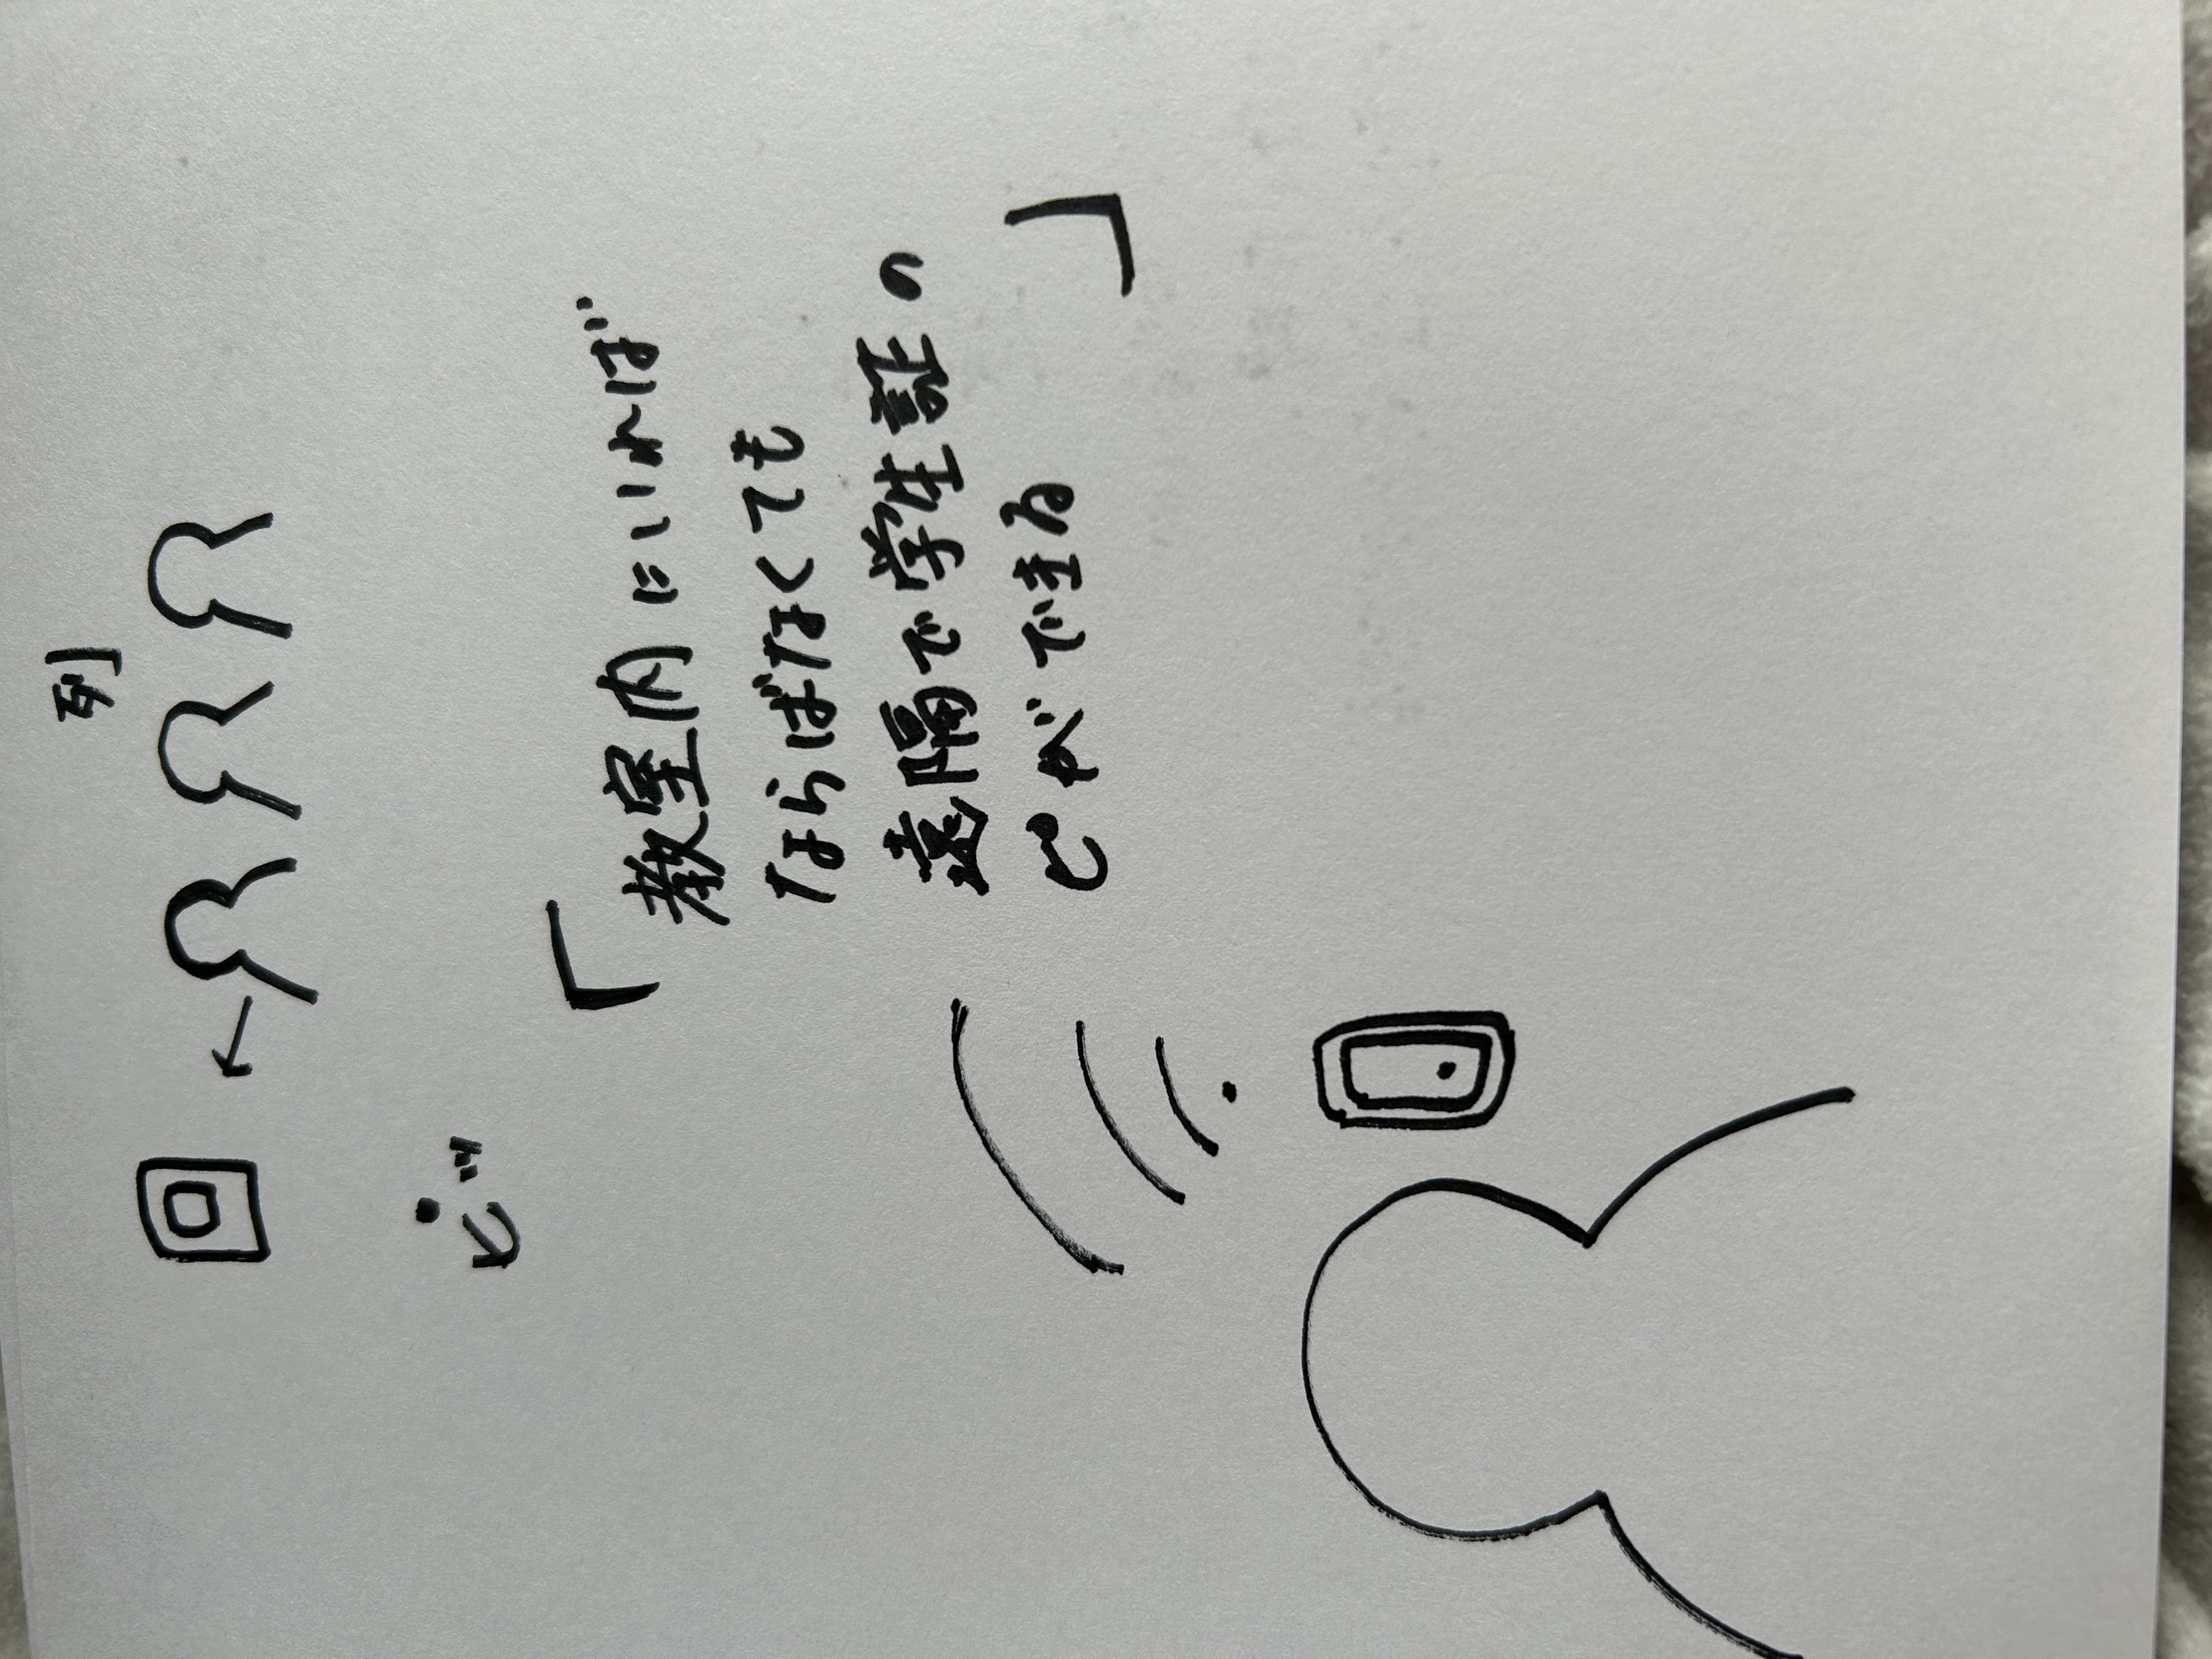 列
ピッ
「教室内にいれば
ならばなくても
遠隔で学生証の
ピができる」